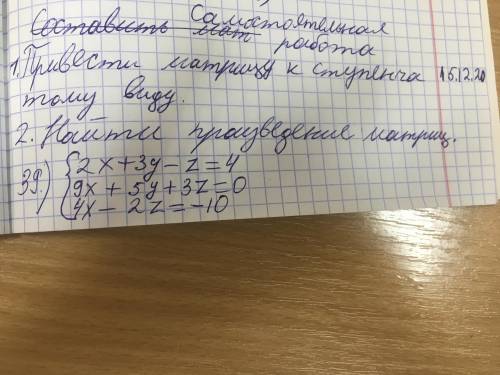 Составить мат Самостоятельная
работа
1. Привести матрицу к ступенча 15.12.20
тому виду.
2. Найти произведение матриц.
39.) { 2x+3y-z=4
9x+5y+3z=0
4x-2z=-10